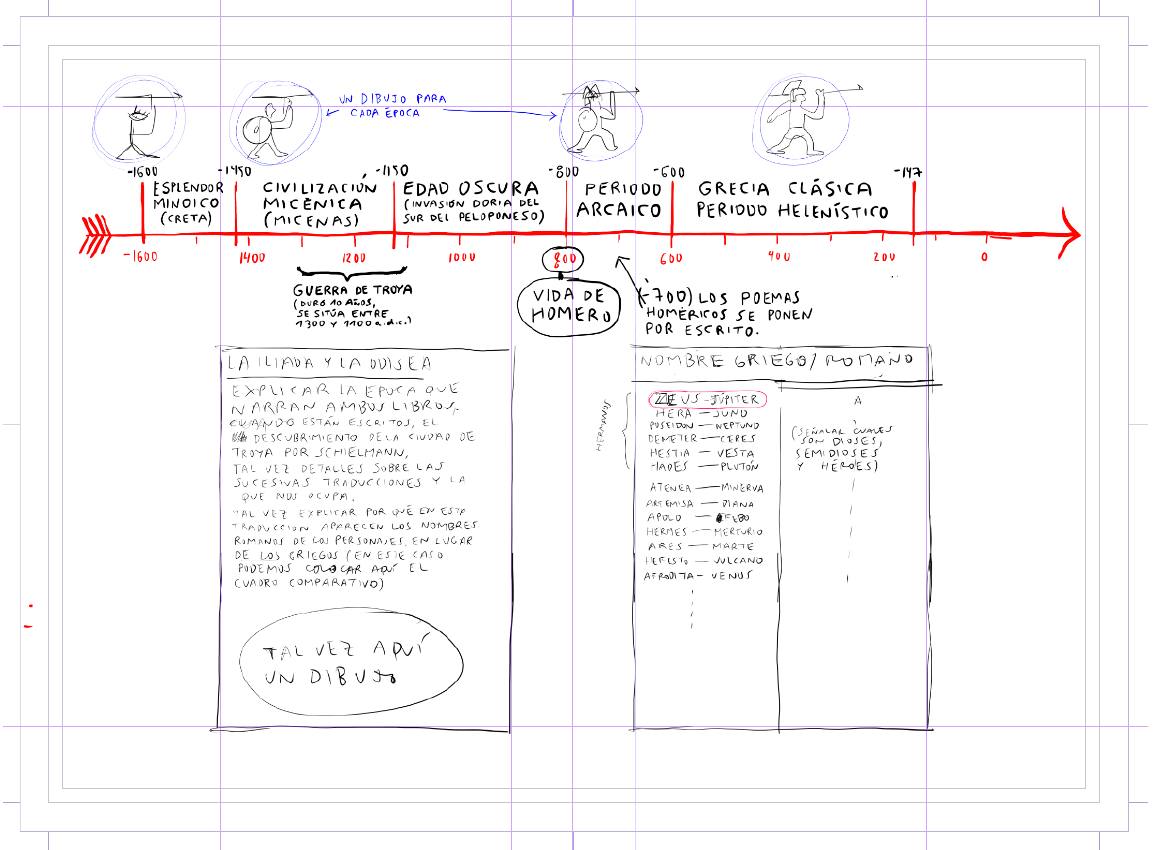 UN DIBUJO PARA
CADA ÉPOCA
-1600
-1450
-1150
-800
-600
-147
ESPLENDOR
MINOICO
(CRETA)
CIVILIZACIÓN
MICÉNICA
(MICENAS)
EDAD OSCURA
(INVASIÓN DORIA DEL
SUR DEL PELOPONESO)
PERIODO
ARCAICO
GRECIA CLÁSICA
PERIODO HELENÍSTICO
-1600
1400
1200
1000
800
600
400
200
0
GUERRA DE TROYA
(DURÓ 10 AÑOS,
SE SITÚA ENTRE
1300 Y 1100 a.d.c.)
VIDA DE
HOMERO
(-700) LOS POEMAS
HOMÉRICOS SE PONEN
POR ESCRITO.
LA ILIADA Y LA ODISEA
EXPLICAR LA EPOCA QUE
NARRAN AMBOS LIBROS,
CUANDO ESTÁN ESCRITOS, EL
DESCUBRIMIENTO DE LA CIUDAD DE
TROYA POR SCHIELMANN,
TAL VEZ DETALLES SOBRE LAS
SUCESIVAS TRADUCCIONES Y LA
QUE NOS OCUPA.
TAL VEZ EXPLICAR POR QUÉ EN ESTA
TRADUCCION APARECEN LOS NOMBRES
ROMANOS DE LOS PERSONAJES, EN LUGAR
DE LOS GRIEGOS (EN ESTE CASO
PODEMOS COLOCAR AQUÍ EL
CUADRO COMPARATIVO)
TAL VEZ AQUÍ
UN DIBUJO
NOMBRE GRIEGO/ROMANO
ZEUS - JÚPITER
HERA — JUNO
POSEIDON — NEPTUNO
DEMETER — CERES
HESTIA — VESTA
HADES — PLUTÓN
ATENEA — MINERVA
ARTEMISA — DIANA
APOLO — FEBO
HERMES — MERCURIO
ARES — MARTE
HEFESTO — VULCANO
AFRODITA — VENUS
A
(SEÑALAR CUALES
SON DIOSES,
SEMIDIOSES
Y HÉROES)